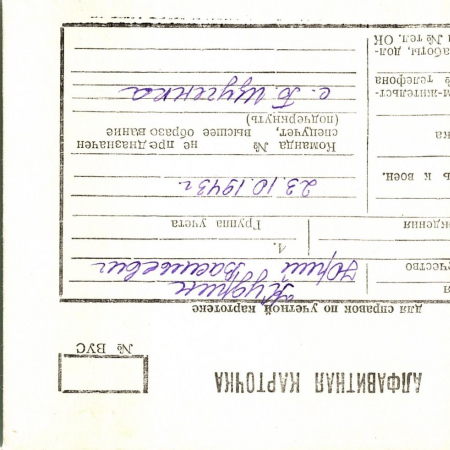 АЛФАВИТНАЯ КАРТОЧКА
№ ВУС
для справок по учетной картотеке
Кудрин
чество Юрий Васильевич
1.
ждения Группа учета
23.10.1943г.
ь к воен. Команда № не предназначен
ка спецучет, высшее образование
(подчеркнуть)
м-жительст- с. Б. Шугенка
№ телефона
аботы, дол-
№ тел. ОК